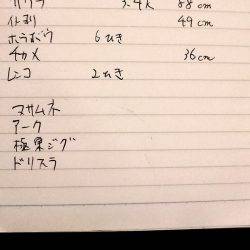 ハガツ 3.4K 88cm
イトヨリ 49cm
ホウボウ 6ひき
チカメ 36cm
レンコ 2ひき
マサムネ
アーク
極果ジグ
ドリスラ